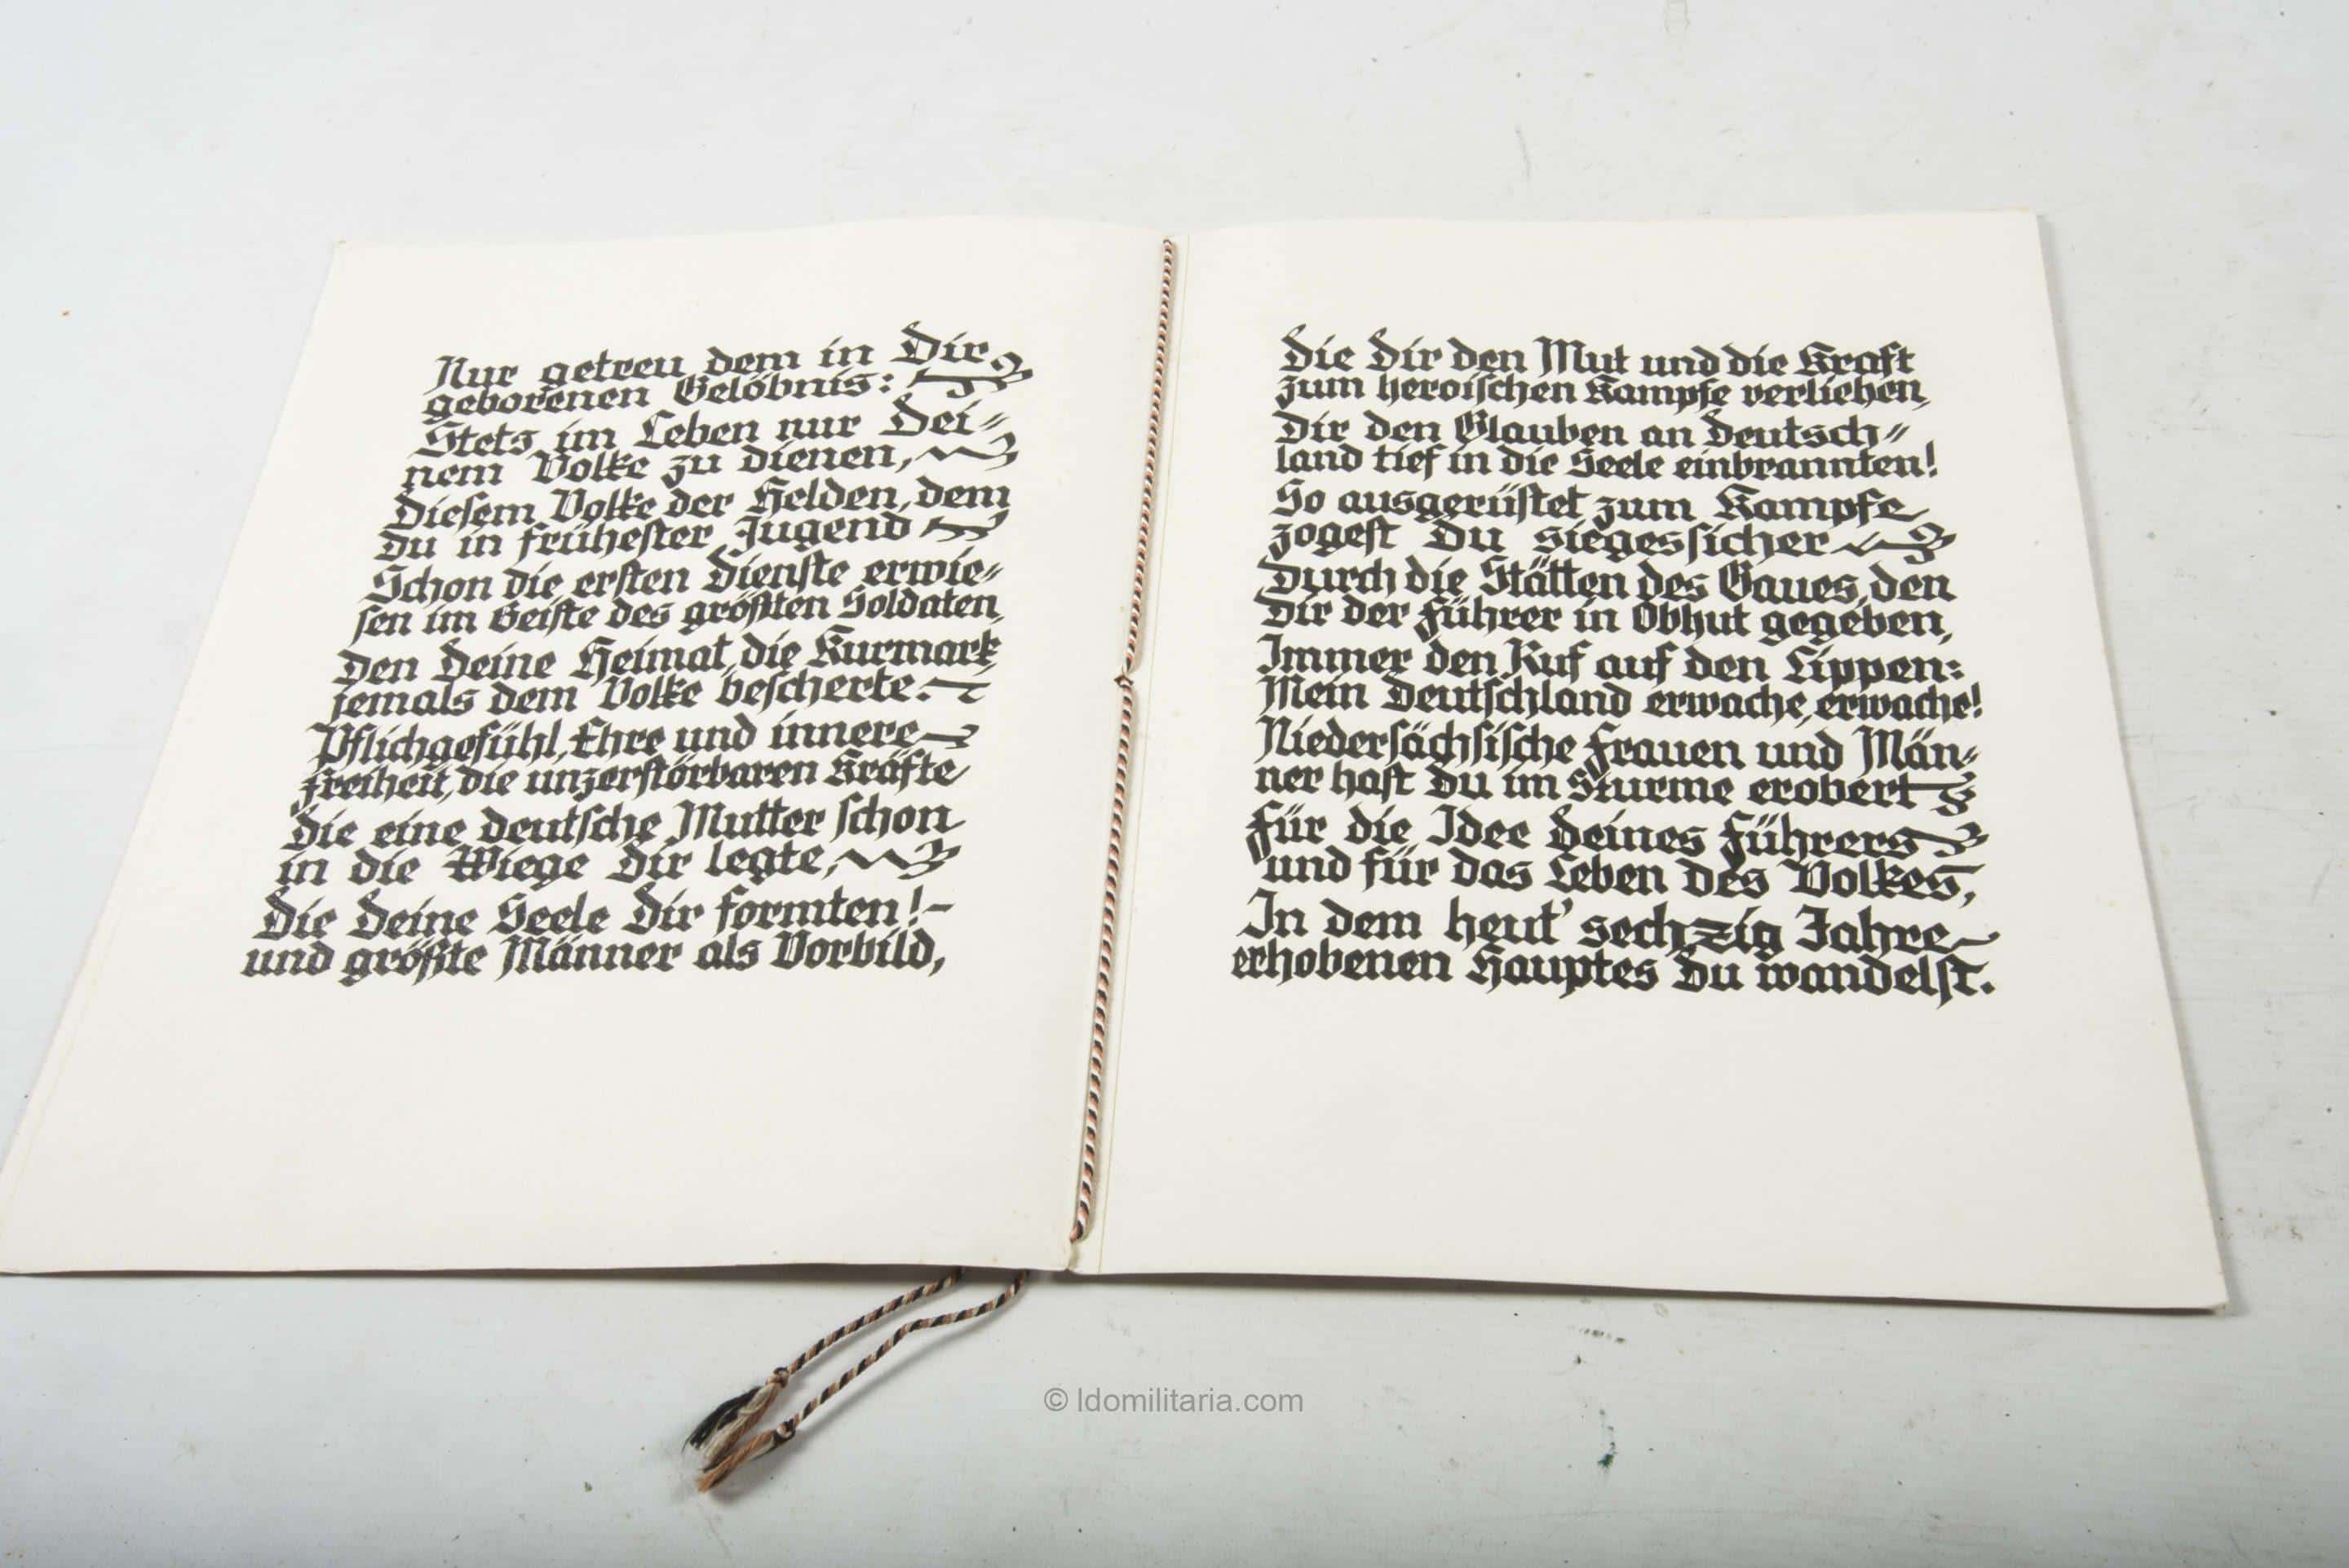 Nur getreu dem in Dir
geborenen Gelöbnis:
Stets im Leben nur Dei-
nem Volke zu dienen,
Diesem Volke der Helden, dem
Du in frühester Jugend
Schon die ersten Dienste erwie-
sen im Geiste des größten Soldaten,
Den Deine Heimat, die Kurmark,
jemals dem Volke bescherte.
Pflichgefühl, Ehre und innere
Freiheit, die unzerstörbaren Kräfte
Die eine deutsche Mutter schon
in die Wiege Dir legte,
Die Deine Seele Dir formten!-
und größte Männer als Vorbild,
Die Dir den Mut und die Kraft
zum heroischen Kampfe verliehen,
Dir den Glauben an Deutsch-
land tief in die Seele einbrannten!
So ausgerüstet zum Kampfe
zogest Du siegessicher
Durch die Stätten des Gaues, den
Dir der Führer in Obhut gegeben,
Immer den Ruf auf den Lippen:
Mein Deutschland erwache, erwache!
Niedersächsische Frauen und Män-
ner hast Du im Sturme erobert
Für die Idee Deines Führers
und für das Leben des Volkes,
In dem heut' sechzig Jahre
erhobenen Hauptes Du wandelst.
© ldomilitaria.com